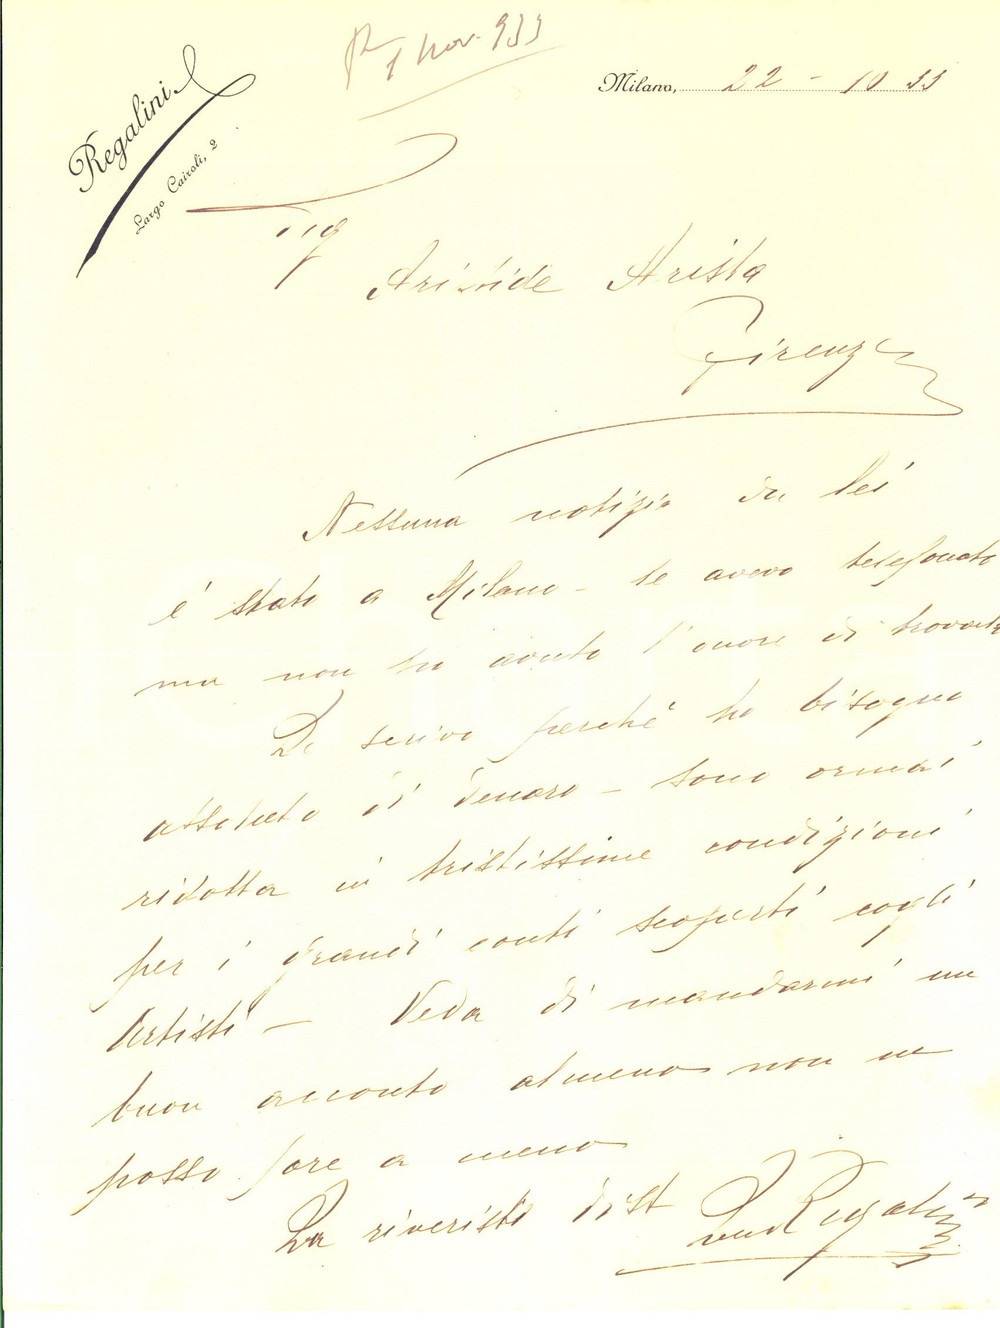 R 1 Nov. 933
Regalini
Largo Cairoli, 2
Milano, 22 - 10 33
Sig
Aristide Arista
Firenze
Nessuna notizia da lei
é stato a Milano - le avevo telefonato
ma non ho avuto l'onore di trovarla
Le scrivo perché ho bisogno
assoluto di denaro - sono ormai
ridotta in tristissime condizioni
per i grandi conti scoperti cogli
Artisti - Veda di mandarmi un
buon acconto almeno non ne
posso fare a meno
La riverisco dist
Regalini